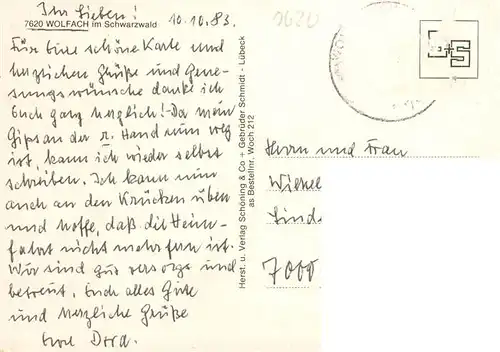 Ihr Lieben! 10.10.83.
7620 WOLFACH im Schwarzwald
Für Eure schöne Karte und
herzlichen Grüße und Gene-
sungswünsche danke ich
Euch ganz herzlich! Da mein
Gips an der r. Hand nun weg
ist, kann ich wieder selbst
schreiben. Ich kann nun
auch an den Krücken üben
und hoffe, daß die Heim-
fahrt nicht mehr fern ist.
Wir sind gut versorgt und
betreut. Euch alles Gute
und herzliche Grüße
Eure Dora.
Herst. u. Verlag Schöning & Co + Gebrüder Schmidt - Lübeck
as Bestellnr. Woch 212
S+S
Herrn und Frau
Linds
7000